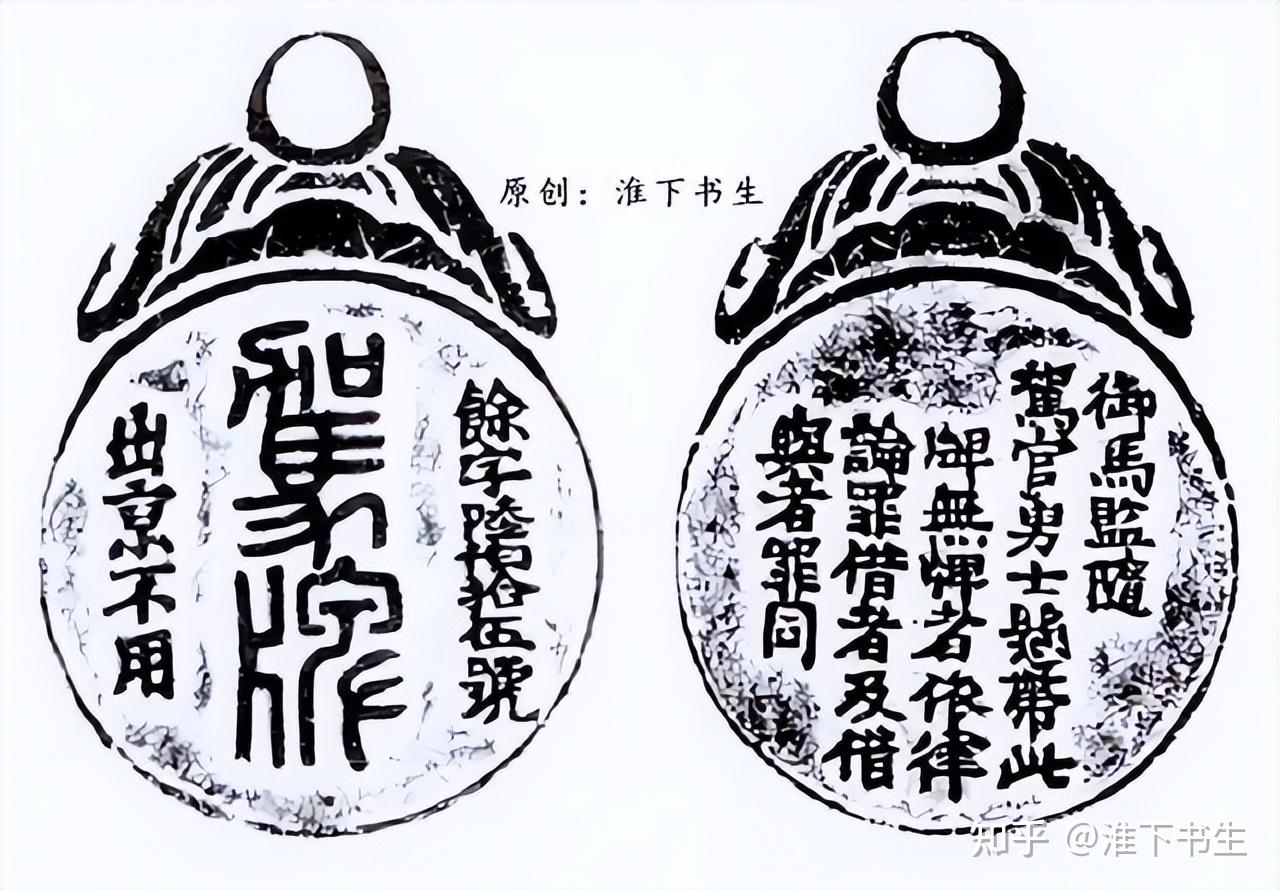 原创：淮下书生
餘字陸佰拾伍號
駕牌
出京不用
御馬監隨
駕官勇士懸帶此
牌無牌者依律
論罪借者及借
與者罪同
知乎 @淮下书生